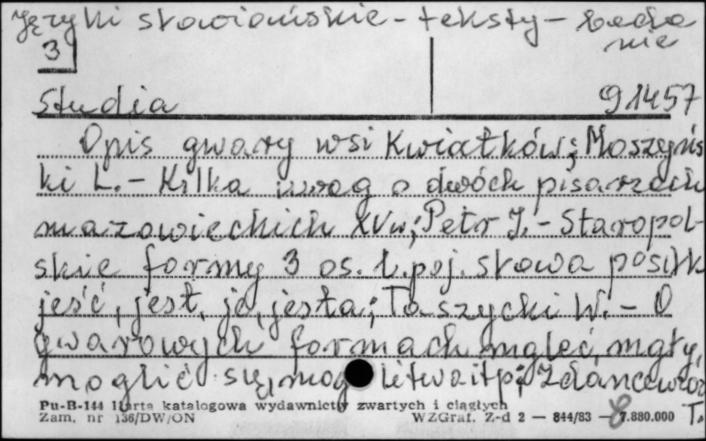 Języki słowiańskie - teksty - bada
nie
3
Studia 91457
Opis gwary wsi Kwiatków; Moszyńs
ki L. - Kilka uwag o dwóch pisarzach
mazowieckich XVw; Petr J. - Staropol-
skie formy 3 os. l.poj. słowa posiłk
jeść, jest, je, jesta; Taszycki W. - O
gwarowych formach mgleć, mgły,
moglić się, itp; Zdancewicz
T.
Pu-B-144 Karta katalogowa wydawnictw zwartych i ciągłych
Zam. nr 136/DW/ON WZGraf. Z-d 2 — 844/83 — 7.880.000